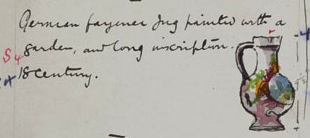 German fayence Jug painted with a
garden, and long inscription.
18 century.